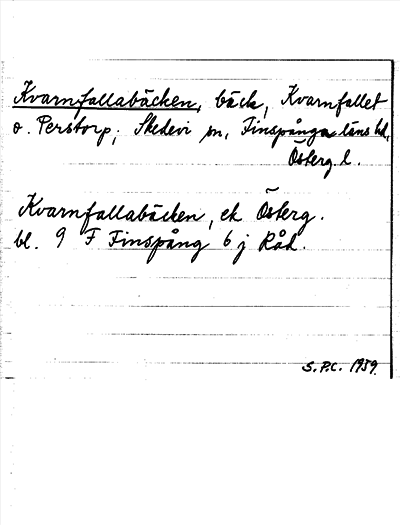 Kvarnfallabäcken, bäck, Kvarnfallet
o. Perstorp; Skedevi sn, Finspånga läns hd,
Österg. l.
Kvarnfallabäcken, ek Österg.
bl. 9 F Finspång 6 j Råd.
S.P.C. 1959.